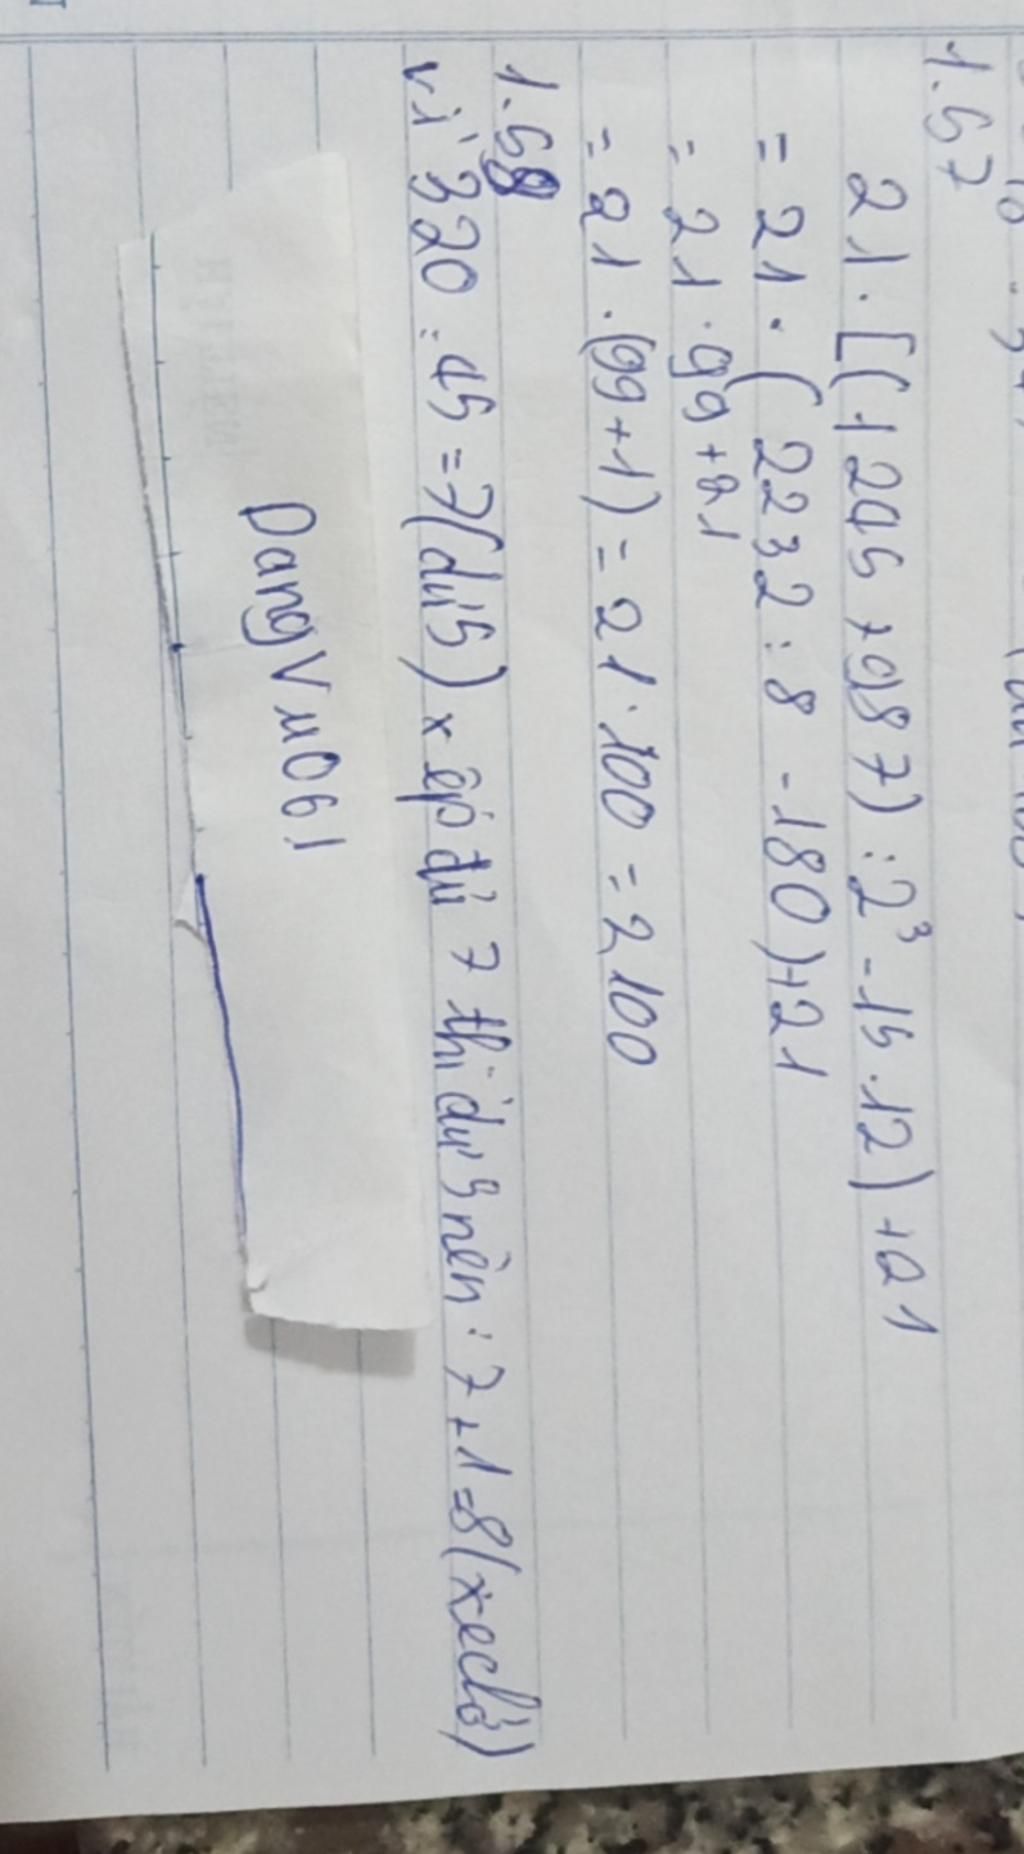 1.57
21.[(1245+987):2³-15.12)+21
=21.(2232:8-180)+21
=21.99+21
=21.(99+1)=21.100=2100
1.58
vì 320:45=7(dư5)xếp đủ 7 thì dư 5 nên: 7+1=8(xe chở)
DangVu061